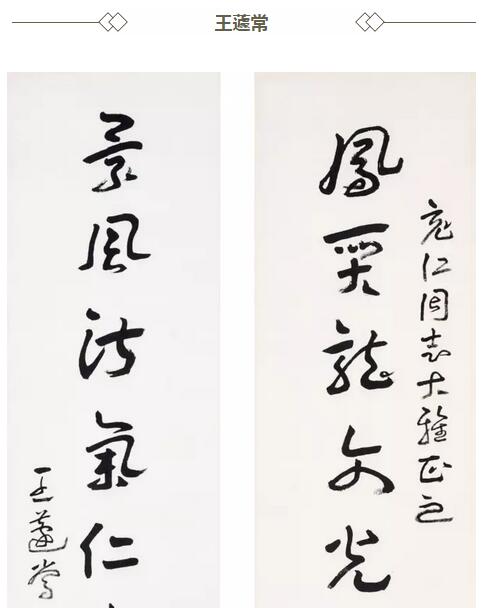 王蘧常
仁同志大雅正之
鳳龍文光
景風氣仁
王蘧常